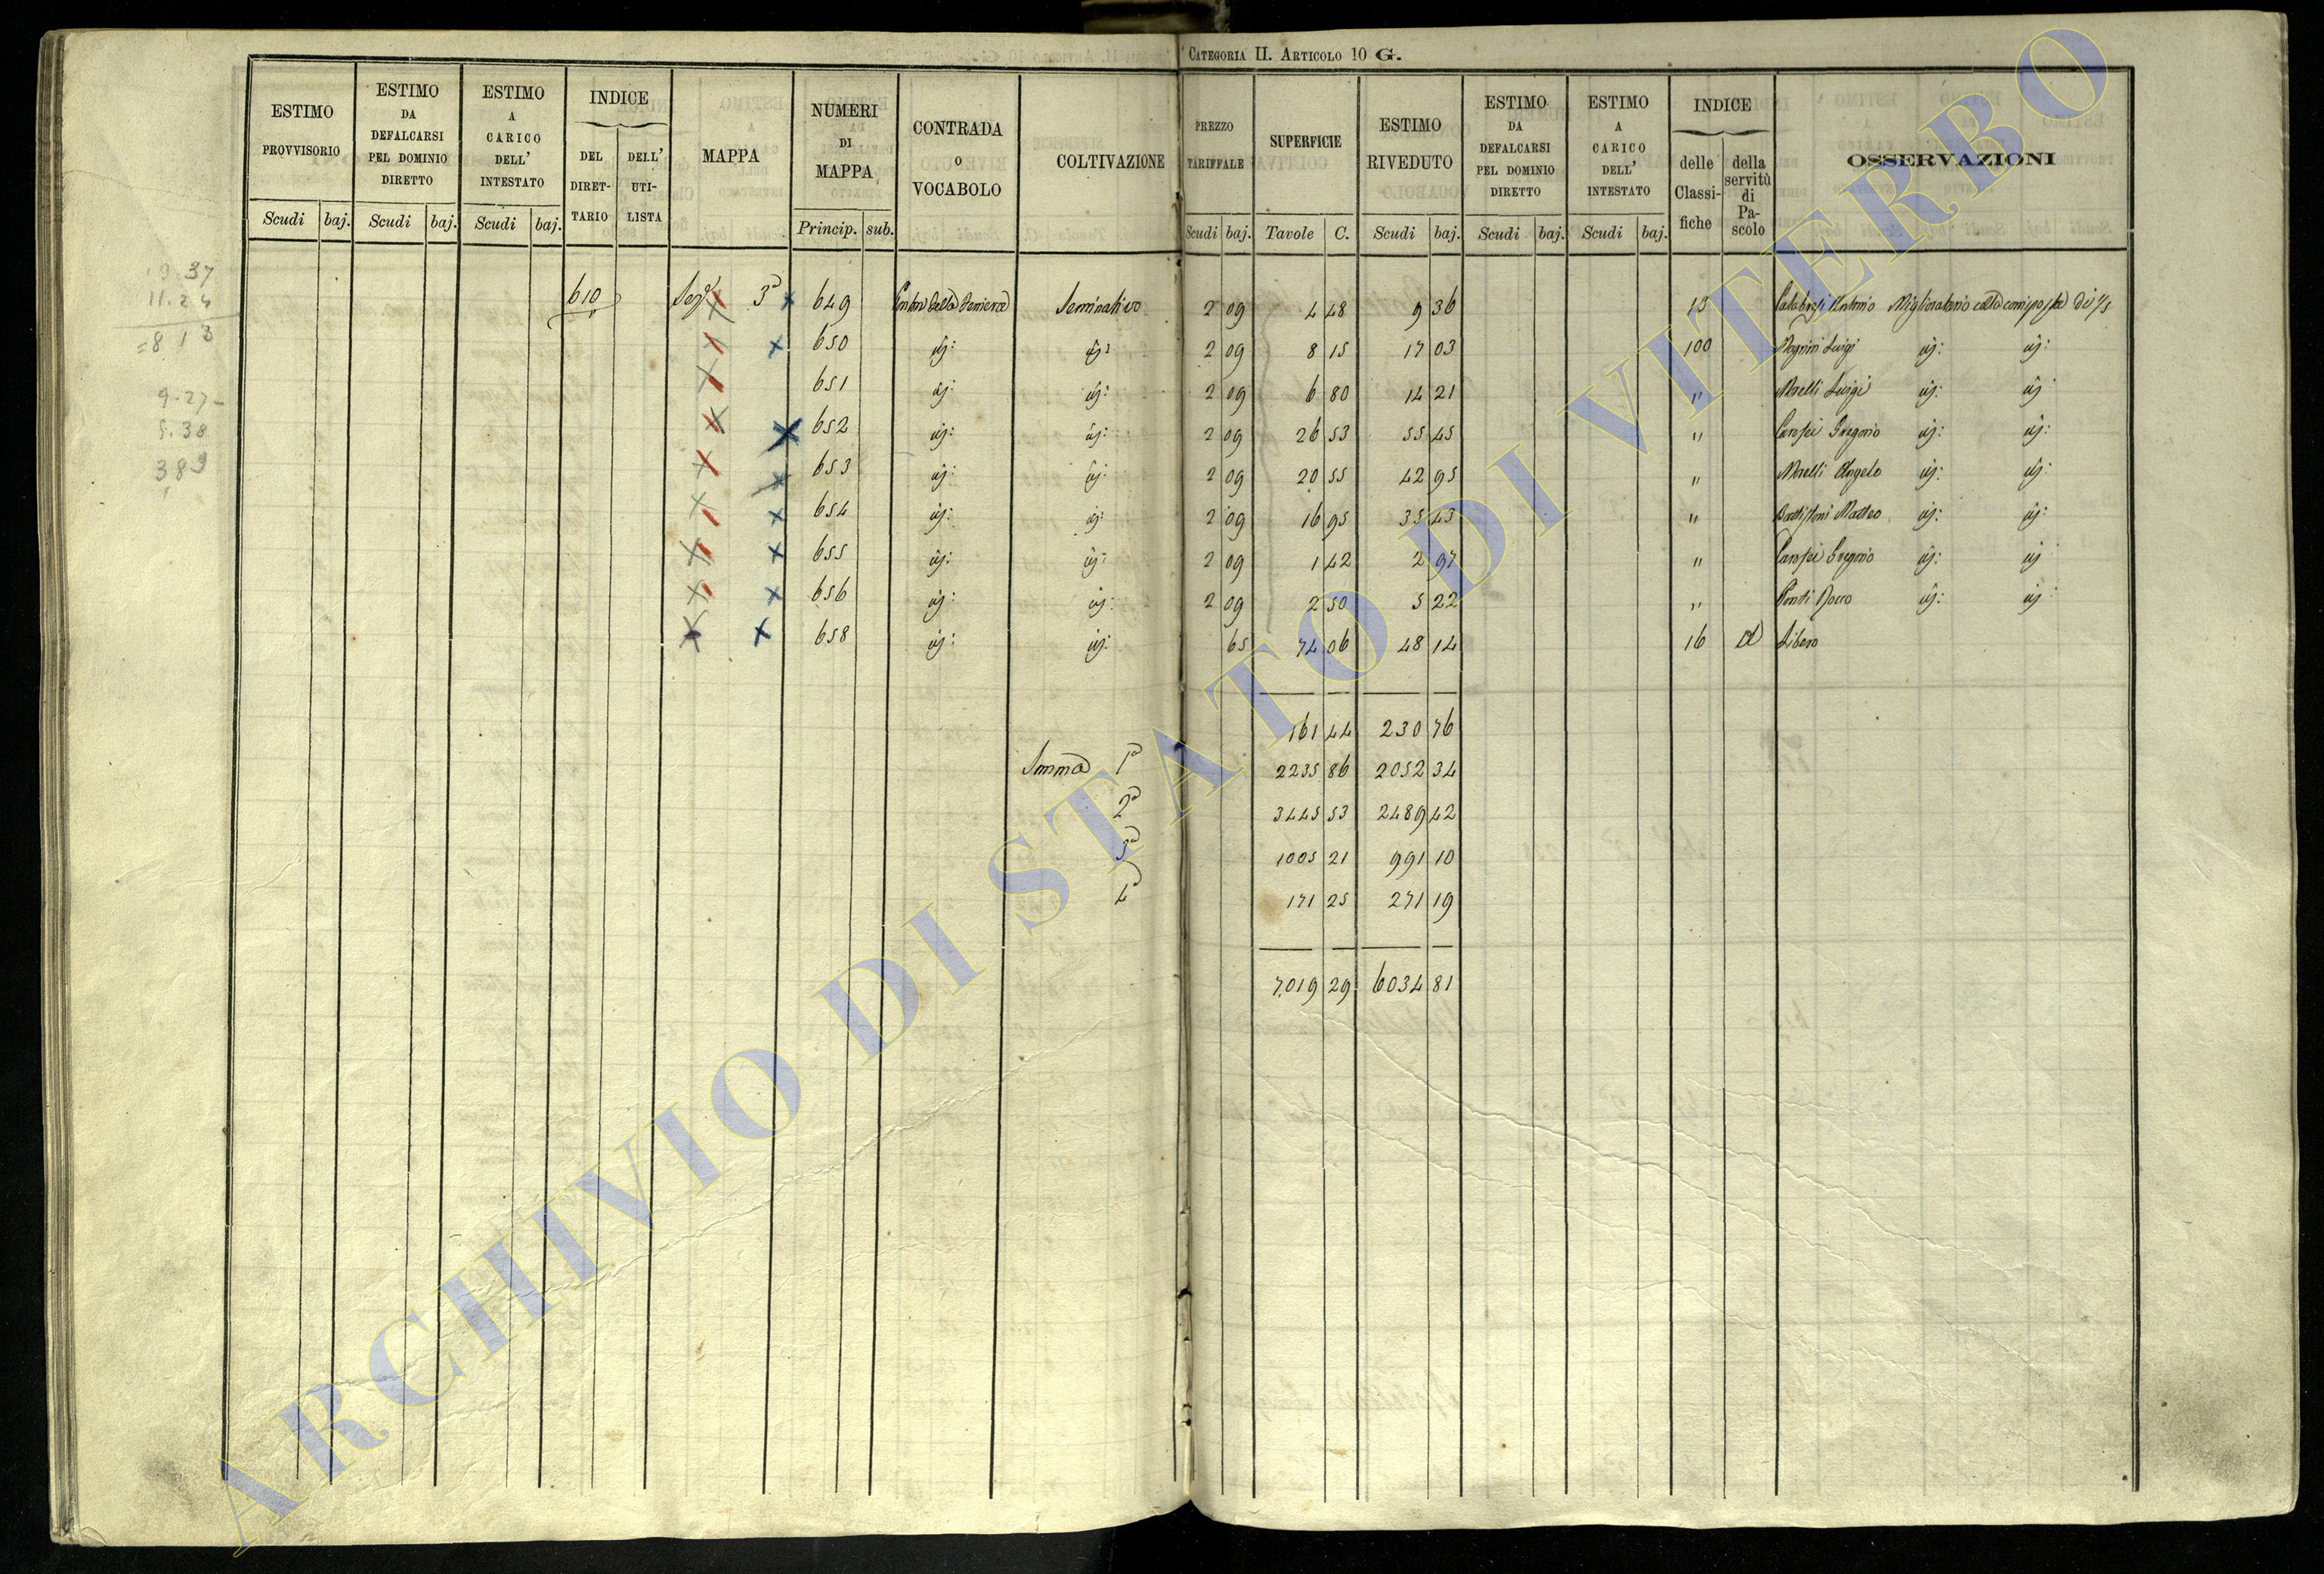 CATEGORIA II. ARTICOLO 10 G.
ESTIMO PROVVISORIO Scudi baj.
ESTIMO DA DEFALCARSI PEL DOMINIO DIRETTO Scudi baj.
ESTIMO A CARICO DELL' INTESTATO Scudi baj.
INDICE DEL DIRETTARIO DELL' UTILISTA
MAPPA
NUMERI DI MAPPA Princip. sub.
CONTRADA O VOCABOLO
COLTIVAZIONE
PREZZO TARIFFALE Scudi baj.
SUPERFICIE Tavole C.
ESTIMO RIVEDUTO Scudi baj.
ESTIMO DA DEFALCARSI PEL DOMINIO DIRETTO Scudi baj.
ESTIMO A CARICO DELL' INTESTATO Scudi baj.
INDICE delle Classifiche della servitù di Pascolo
OSSERVAZIONI
37
11.24
=813
9.27-
5.38
389
610 Sez 3ª 649 Seminativo 2 09 4 48 9 36 13 Antonio Miglioratario colla corrisposta di 1/5
650 id: id: 2 09 8 15 17 03 100 Luigi id: id:
651 id: id: 2 09 6 80 14 21 " Morelli Luigi id: id:
652 id: id: 2 09 26 53 55 45 " Carosei Gregorio id: id:
653 id: id: 2 09 20 55 42 95 " Morelli Angelo id: id:
654 id: id: 2 09 16 95 35 43 " Battistoni Matteo id: id:
655 id: id: 2 09 1 42 2 97 " Carosei Gregorio id: id:
656 id: id: 2 09 2 50 5 22 " Ponti Rocco id: id:
658 id: id: 65 74 06 48 14 16 A Libero
161 44 230 76
Somma 1ª 2235 86 2052 34
2ª 3445 53 2489 42
3ª 1005 21 991 10
4ª 171 25 271 19
7019 29 6034 81
ARCHIVIO DI STATO DI VITERBO